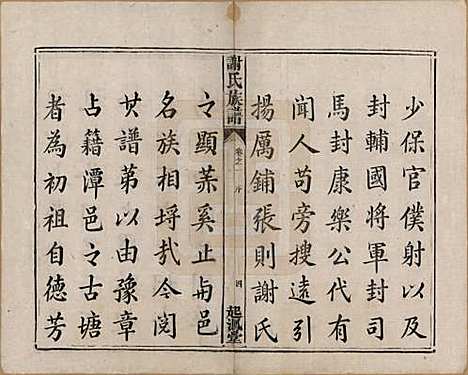 少保官僕射以及
封輔國將軍封司
馬封康樂公代有
聞人苟旁搜遠引
揚厲鋪張則謝氏
謝氏族譜
卷之一 序
四
起鳳堂
之顯榮奚止與邑
名族相埒哉今閱
其譜第以由豫章
占籍潭邑之古塘
者為初祖自德芳